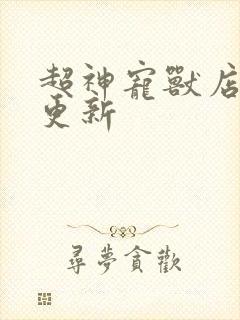 超神寵獸店
更新
尋夢貪歡